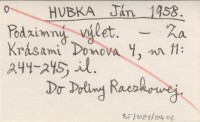 HUBKA Ján 1958.
Podzimný výlet. - Za
Krásami Domova 4, nr 11:
244-245, il.
Do Doliny Raczkowej.